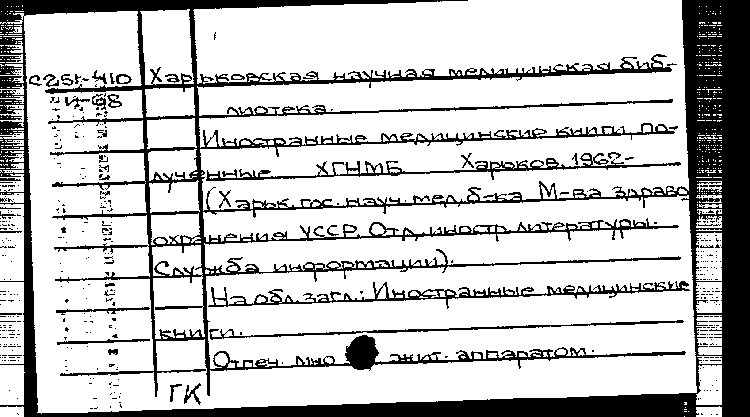 С251-410 Харьковская научная медицинская биб-
И-68 лиотека.
Иностранные медицинские книги, по-
лученные ХГНМБ Харьков, 1962-
(Харьк. гос. науч. мед. б-ка М-ва здраво
охранения УССР. Отд. иностр. литературы.
Служба информации).
На обл. загл.: Иностранные медицинские
книги.
Отпеч. мно жит. аппаратом.
ГК